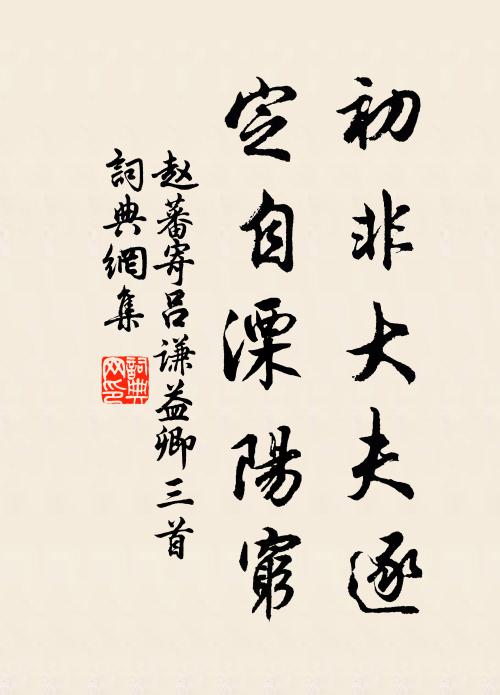 初非大夫逐
定自溧陽窮
赵蕃寄吕谦益卿三首
詞典網集
詞典网印